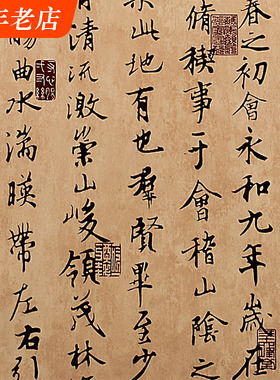 年老店
春之初會永和九年歲在
脩稧事于會稽山陰之
集此地有也羣賢畢至少
有清流激崇山峻領茂林
觴曲水湍暎帶左右引